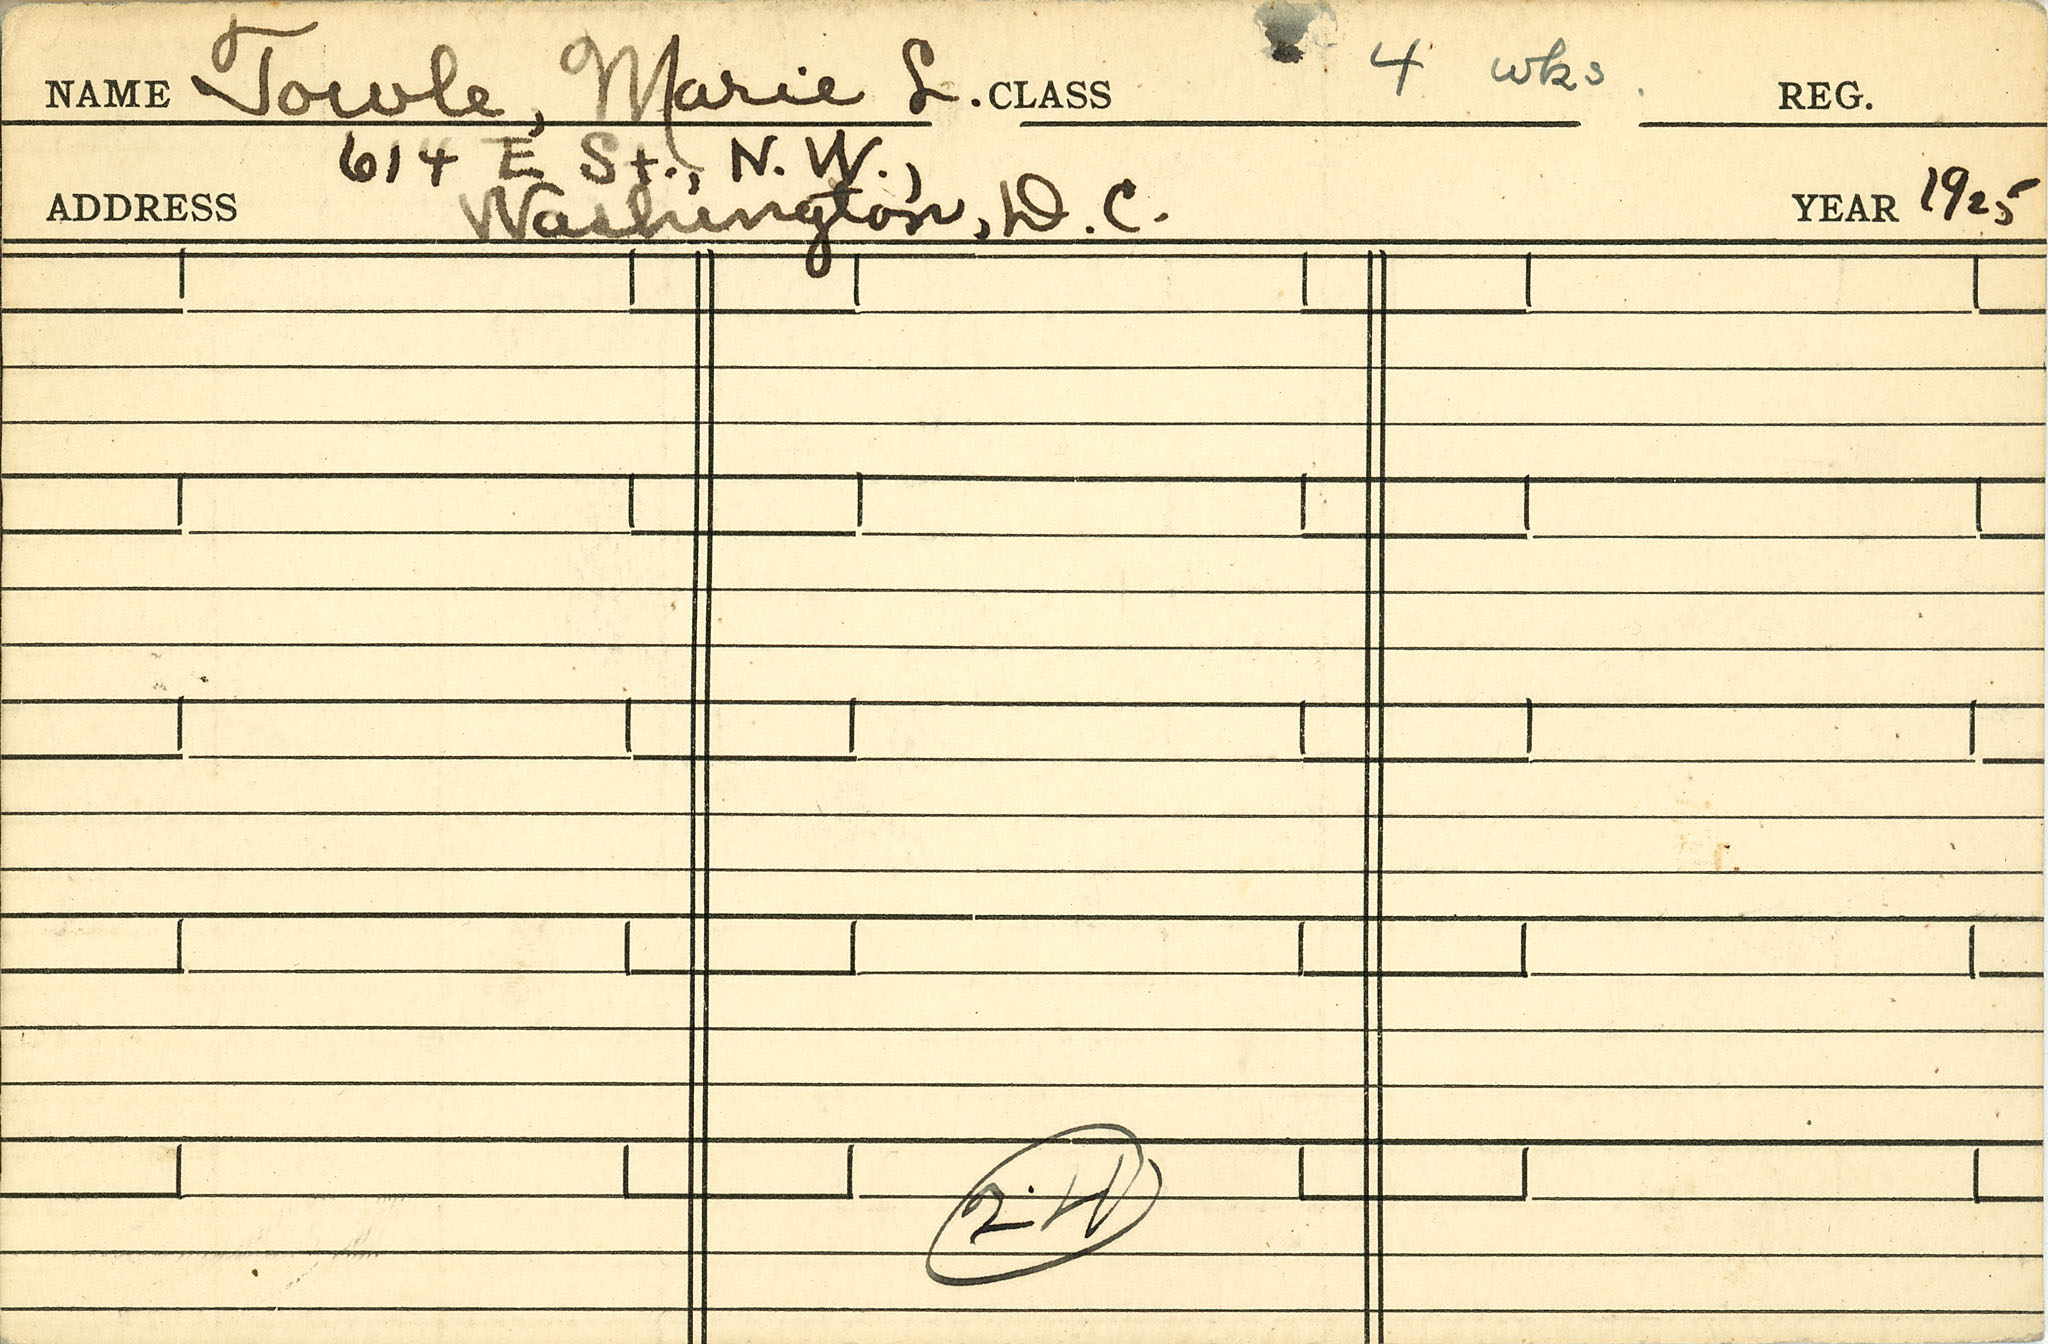 NAME Towle, Marie L. CLASS 4 wks. REG.
614 E St., N.W.,
ADDRESS Washington, D.C. YEAR 1925